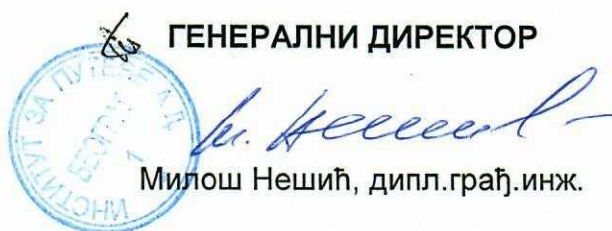 ГЕНЕРАЛНИ ДИРЕКТОР
ИНСТИТУТ ЗА ПУТЕВЕ А.Д.
БЕОГРАД
1
М. Нешић
Милош Нешић, дипл.грађ.инж.